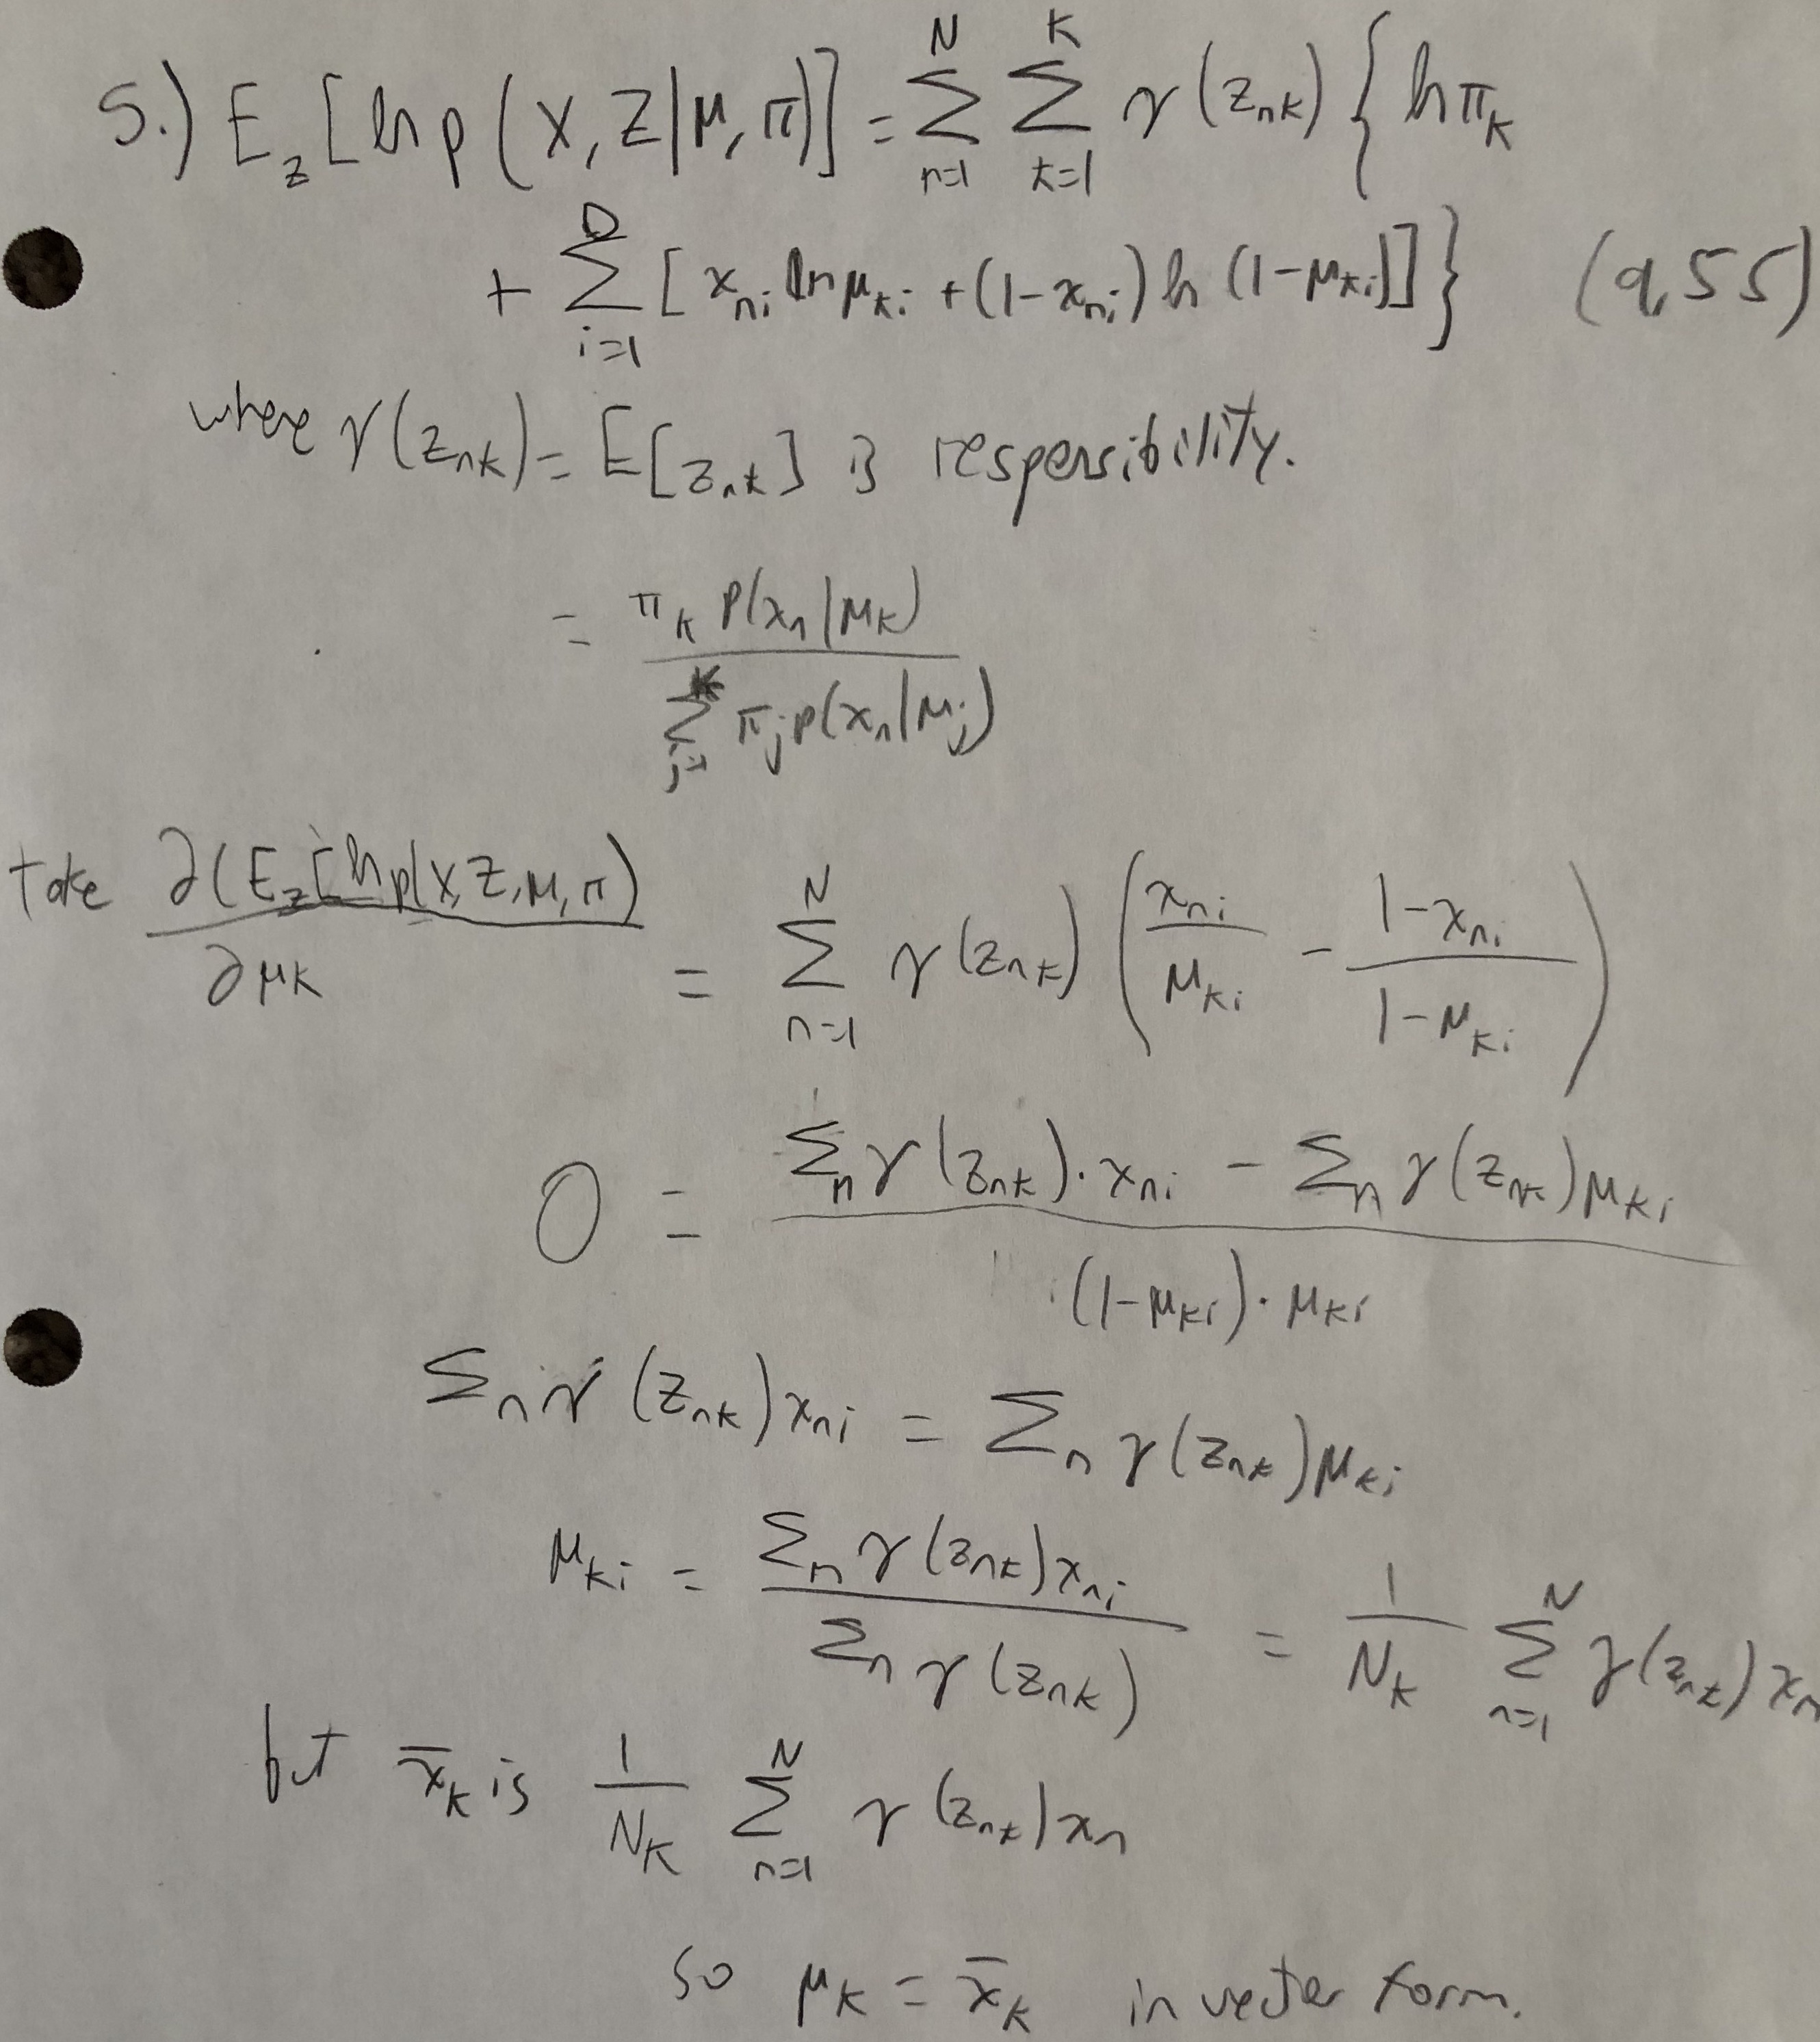 5.) E_z [ln p(X, Z|μ, π)] = Σ_{n=1}^{N} Σ_{k=1}^{K} γ(z_{nk}) { ln π_k
+ Σ_{i=1}^{D} [x_{ni} ln μ_{ki} + (1-x_{ni}) ln (1-μ_{ki})] } (9.55)
where γ(z_{nk}) = E[z_{nk}] is responsibility.
= π_k p(x_n|μ_k) / Σ_{j=1}^{K} π_j p(x_n|μ_j)
take ∂(E_z[ln p(X, Z, μ, π) / ∂μ_k = Σ_{n=1}^{N} γ(z_{nk}) ( x_{ni} / μ_{ki} - (1-x_{ni}) / (1-μ_{ki}) )
0 = (Σ_n γ(z_{nk}) · x_{ni} - Σ_n γ(z_{nk}) μ_{ki}) / ((1-μ_{ki}) · μ_{ki})
Σ_n γ(z_{nk}) x_{ni} = Σ_n γ(z_{nk}) μ_{ki}
μ_{ki} = Σ_n γ(z_{nk}) x_{ni} / Σ_n γ(z_{nk}) = 1/N_k Σ_{n=1}^{N} γ(z_{nk}) x_n
but x̄_k is 1/N_k Σ_{n=1}^{N} γ(z_{nk}) x_n
so μ_k = x̄_k in vector form.